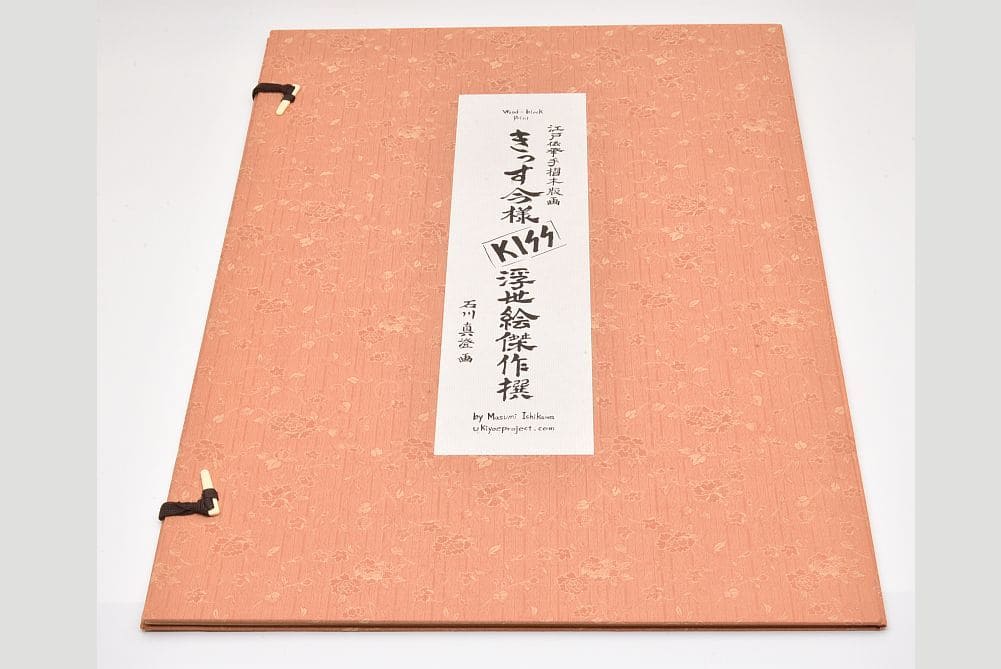 Wood-block
Print
江戸伝承手摺木版画
きっす今様
KISS
浮世絵傑作撰
石川真澄画
by Masumi Ishikawa
ukiyoeproject.com